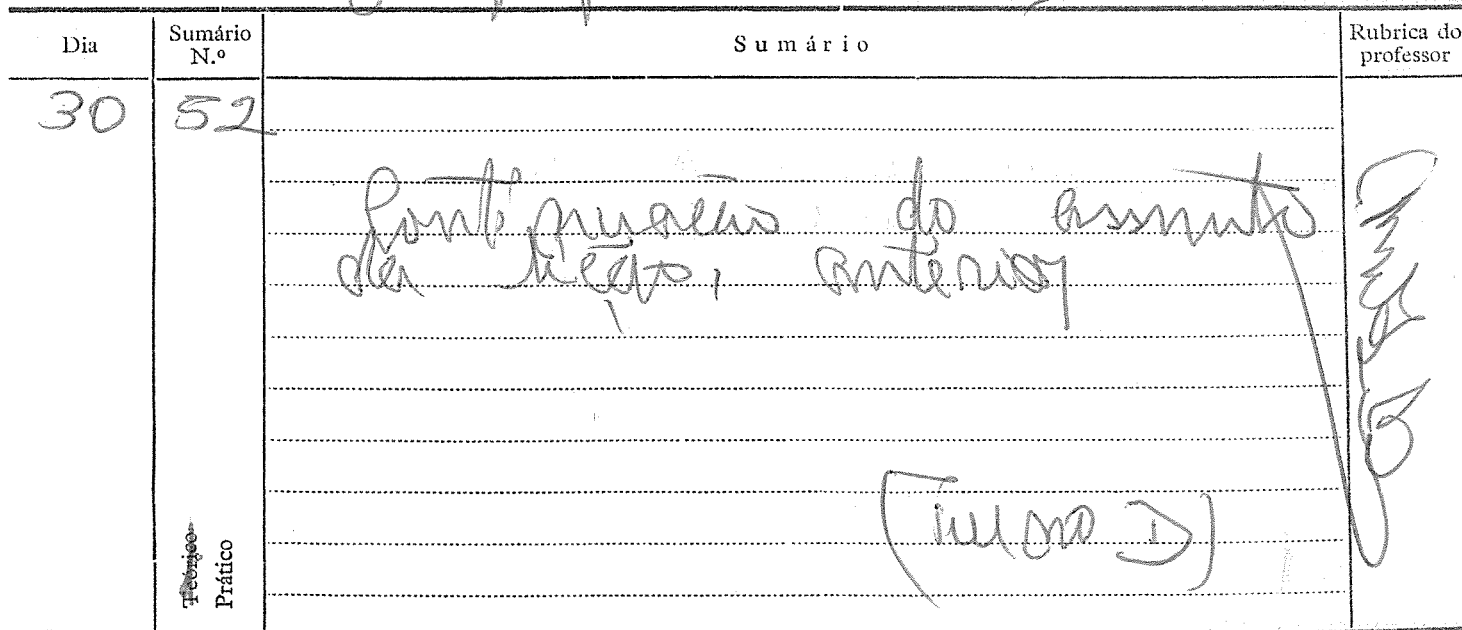 Dia
Sumário
N.º
Sumário
Rubrica do
professor
30
52
Continuação do assunto
da lição, anterior
(Turma D)
Teórico
Prático